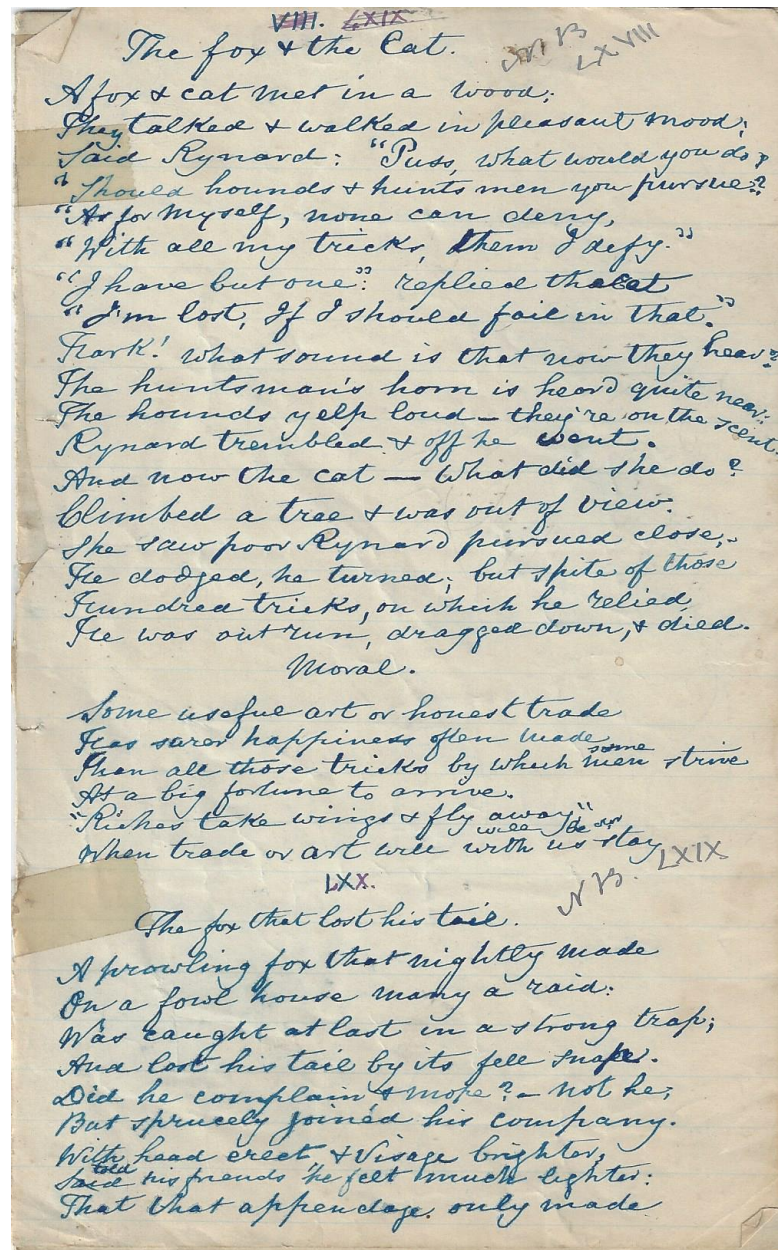 VIII. LXIX.
The fox & the Cat.
NB
LXVIII
A fox & cat met in a wood;
They talked & walked in pleasant mood;
Said Rynard: "Puss, what would you do,
"Should hounds & hunts men you pursue?
"As for myself, none can deny,
"With all my tricks, them I defy."
"I have but one": replied the cat
"I'm lost, If I should fail in that."
Hark! what sound is that now they hear?
The huntsman's horn is heard quite near:
The hounds yelp loud — they're on the scent.
Rynard trembled & off he went.
And now the cat — What did she do?
Climbed a tree & was out of view.
She saw poor Rynard pursued close,
He dodged, he turned; but spite of those
Hundred tricks, on which he relied,
He was out run, dragged down, & died.
Moral.
Some useful art or honest trade
Has surer happiness often made
some
Than all those tricks by which men strive
At a big fortune to arrive.
"Riches take wings & fly away"
will
When trade or art will with us stay
LXIX
LXX.
NB.
The fox that lost his tail.
A prowling fox that nightly made
On a fowl house many a raid:
Was caught at last in a strong trap;
And lost his tail by its fell snap.
Did he complain & mope? — not he;
But sprucely joined his company.
With head erect & Visage brighter,
told
Said his friends he felt much lighter:
That that appendage only made